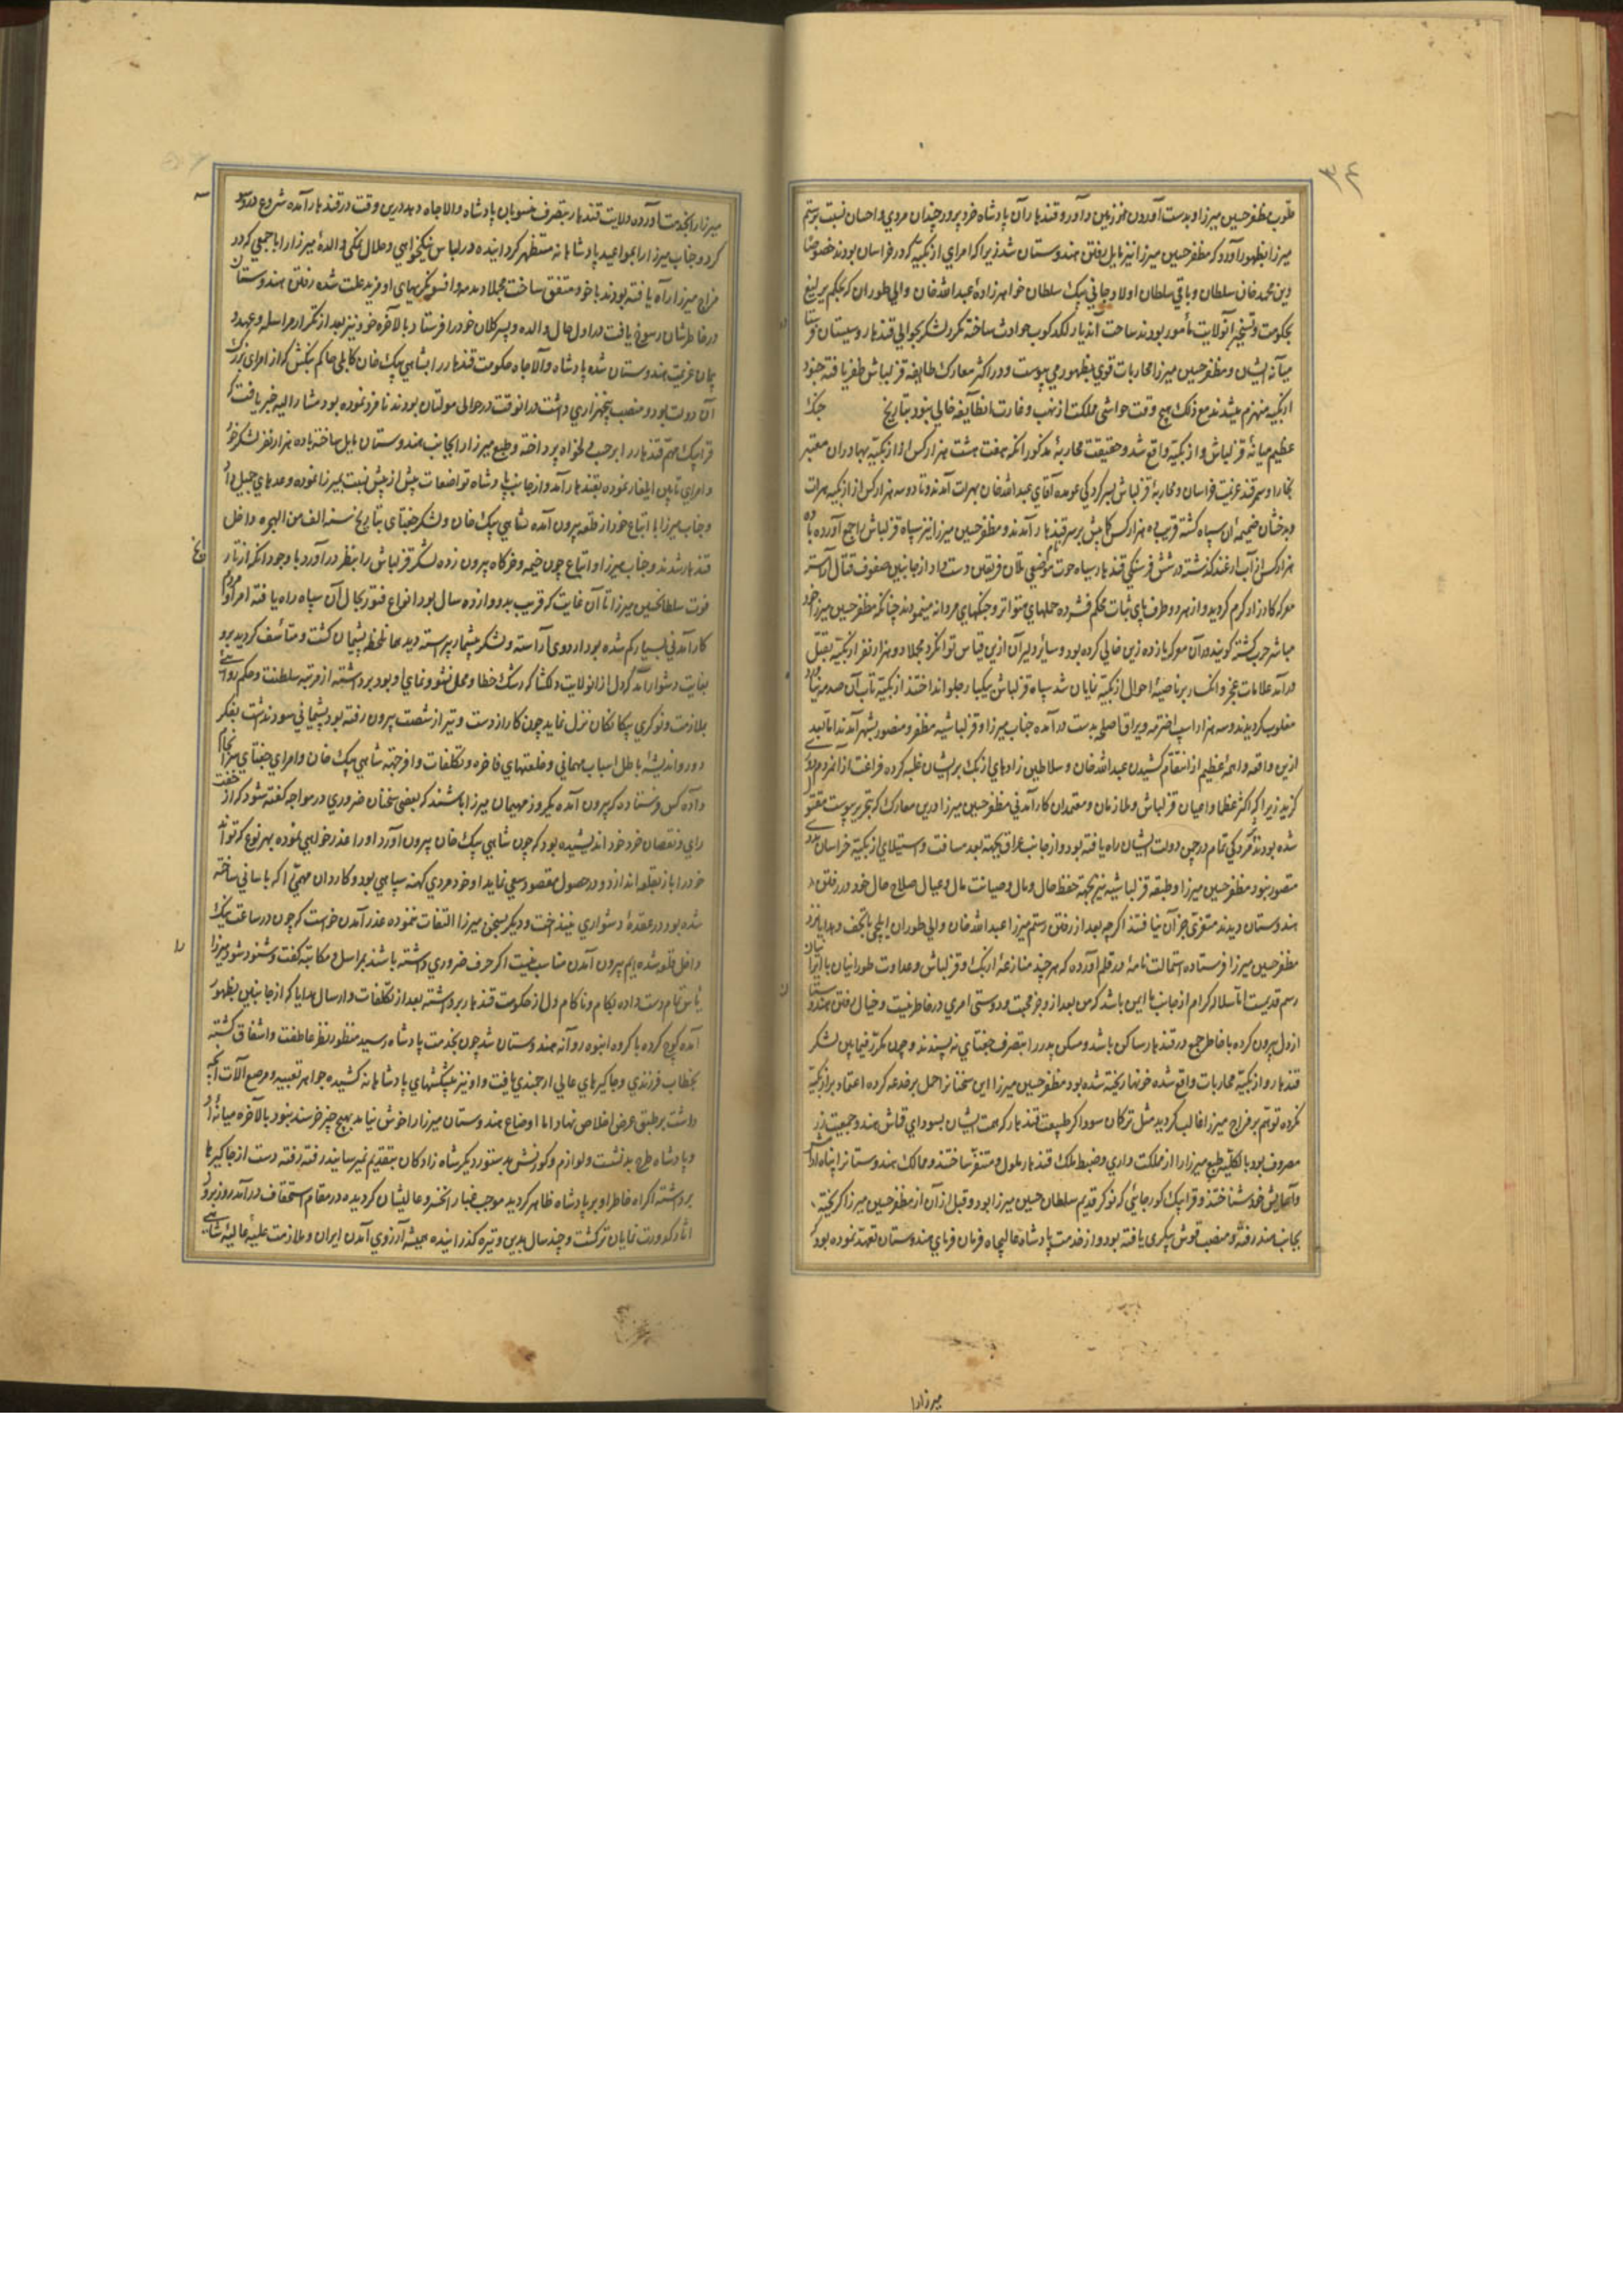 ۳۴
قلوب مظفر حسین میرزا و بدست آوردن او زمین داور و قندهار آن پادشاه خرد پرور چندان مردی و احسان نسبت برستم
میرزا بظهور آورد که مظفر حسین میرزا نیز مایل برفتن هندوستان شد زیرا که امرای ازبکیه که در خراسان بودند خصوصا
دین محمد خان سلطان و باقی سلطان اولاد جانی بیک سلطان خواهرزادهٔ عبدالله خان والی طوران که بحکم یرلیغ
بحکومت و تسخیر آنولایت مأمور بودند ساحت آندیار لگدکوب حوادث ساخته مکرر لشکر بحوالی قندهار و سیستان
میآنه ایشان و مظفر حسین میرزا محاربات قوی بظهور می پیوست و در اکثر معارک طایفه قزلباش ظفر یافته جنود
ازبکیه منهزم میشدند مع ذلک هیچ وقت حواشی مملکت از نهب و غارت انطایفه خالی نبود بتاریخ جنک
عظیم میانهٔ قزلباش و ازبکیه واقع شد و حقیقت محاربهٔ مذکور انکه هفت هشت هزار کس از ازبکیه بهادران معتبر
بخارا و سمرقند عزیمت خراسان و محاربهٔ قزلباش بسرکردکی عمده آقای عبدالله خان بهرات آمدند و تا دو سه هزار کس از ازبکیه هرات
و بدخشان ضمیمه ان سپاه کشته قریب ده هزار کس کما بیش بر سر قندهار آمدند و مظفر حسین میرزا نیز سپاه قزلباش را جمع آورده با ده
هزار کس از آب ارغند گذشته در شش فرسنکی قندهار تلاقی فریقین دست داد از جانبین صفوف قتال آراسته
معرکه کارزار کرم کردید و از هر دو طرف پای ثبات محکم فشرده حملهای متواتر و جنکهای مردانه مینمودند چنانکه مظفر حسین میرزا خود
مباشر حرب کشته کویند در آن معرکه یازده زین خالی کرده بود و سایر دلیران ازین قیاس توانکرد مجملا دو هزار نفر ازبکیه بقتل
درآمد علامات عجز و انکسار بر ناصیهٔ احوال ازبکیه نمایان شد سپاه قزلباش یکبار جلو انداختند ازبکیه تاب آن صدمه نیاورده
مغلوب کردیدند و سه هزار اسب اخترمه و یراق اصلی بدست درآمده جناب میرزا و قزلباشیه مظفر و منصور بشهر آمدند اما بعد
ازین واقعه واهمهٔ عظیم از انتقام کشیدن عبدالله خان و سلاطین زادهای ازبک بر ایشان غلبه کرده فراغت از
کزید زیرا که اکثر عظما و اعیان قزلباش و ملازمان و معتمدان کارآمدنی مظفر حسین میرزا درین معارک که بتحریر پیوست مقتول
شده بودند و کردکی تمام در چین دولت ایشان راه یافته بود و از جانب عراق بجهته بعد مسافت و استیلای ازبکیه خراسان
متصور نبود مظفر حسین میرزا و طبقه قزلباشیه نیز بجهته حفظ حال و مال و صیانت مال و عیال صلاح حال خود در رفتن
هندوستان دیدند مفری جز آن نیافتند اگرچه بعد از رفتن رستم میرزا عبدالله خان والی طوران ایلچی با تحف و هدایا نزد
مظفر حسین میرزا فرستاده استمالت نامهٔ در قلم آورده که هر چند منازعهٔ ازبک و قزلباش و عداوت طورانیان با ایرانیان
رسم قدیمست اما سلالهٔ کرام از جانب ما ایمن باشد که من بعد از او جز محبت و دوستی امری در خاطر نیست و خیال رفتن هندوستان
از دل بیرون کرده با خاطر جمع در قندهار ساکن باشد و مسکن پدر را بتصرف جغتای نه پسندند و چون مکرر فیمابین لشکر
قندهار و ازبکیه محاربات واقع شده خونها ریخته شده بود مظفر حسین میرزا این سخنانرا حمل بر خدعه کرده اعتقاد بر ازبکیه
نکرده توهم بر مزاج میرزا غالب کردید مثل ترکان سوداگر طبیعت قندهار که همت ایشان بسودای قماش هند و جمعیت زر
مصروف بود بالکلیه طبع میرزا را از مملکت داری و ضبط ملک قندهار ملول و متنفر ساختند و ممالک هندوستانرا پناه
و آسایش خود شناختند و قرابیک کورجائی که نوکر قدیم سلطان حسین میرزا بود و قبل از آن از مظفر حسین میرزا گریخته
بجانب هند رفته و منصب قوش بیگی یافته بود و از خدمت پادشاه عالیجاه فرمان فرمای هندوستان تعهد نموده بود که
میرزا را
میرزا را بخدمت آورده ولایت قندهار بتصرف منسوبان پادشاه والاجاه دهد درین وقت در قندهار آمده شروع در
کرد و جناب میرزا را بمواعید پادشاهانه مستظهر کردانیده در لباس نیکخواهی و حلال نمکی والدهٔ میرزا را با جمعی که در
مزاج میرزا راه یافته بودند با خود متفق ساخت مجملا او مزید علت شده رفتن هندوستان
در خاطرشان رسوخ یافت در اول حال والده و پسر کلان خود را فرستاد بالآخره خود نیز بعد از تکرار مراسله و عهد و
پیمان عزیمت هندوستان شده پادشاه والاجاه حکومت قندهار را بشاهی بیک خان کابلی حاکم بنکش که از امرای بزرک
آن دولت بود و منصب پنجهزاری داشت در انوقت در حوالی مولتان بودند نامزد نموده بود مشار الیه خبر یافت که
قرابیک مهم قندهار را بر حسب دلخواه پرداخته و طبع میرزا را بجانب هندوستان مایل ساخته با ده هزار نفر لشکر خود
و امرای تابین ایلغار نموده بقندهار آمد و از جانب پادشاه تواضعات بیش از پیش نسبت بمیرزا نموده وعدهای جمیل داد
و جناب میرزا با اتباع خود از قلعه بیرون آمده شاهی بیک خان و لشکر جغتای بتاریخ سنه الف من الهجره داخل
قندهار شدند و جناب میرزا و اتباع چون خیمه و خرکاه بیرون زده لشکر قزلباش را بنظر درآورد با وجود انکه از تاریخ
فوت سلطانحسین میرزا تا آن غایت که قریب بدوازده سال بود انواع فتور بحال آن سپاه راه یافته امرا و مردم
کارآمدنی بسیار کم شده بود اردوی آراسته و لشکر بیشمار پیراسته دید همان لحظه پشیمان کشت و متأسف کردید برو
بغایت دشوار آمد که دل از آنولایت دلکشا که رشک خطا و محل نشو و نمای او بود برداشته از مرتبه سلطنت و حکمروائی
بملازمت و نوکری بیکانکان تنزل نماید چون کار از دست و تیر از شصت بیرون رفته بود پشیمانی سودند اشت بفکر
دور و اندیشهٔ باطل اسباب مهمانی و خلعتهای فاخره و تکلفات وافر جهته شاهی بیک خان و امرای جغتای سرانجام
داده کس فرستاده که بیرون آمده یکروز مهمان میرزا باشند که بعضی سخنان ضروری در مواجه کفته شود که از خفت
رای و نقصان خرد خود اندیشیده بود که چون شاهی بیک خان بیرون آورد او را عذرخواهی نموده بهر نوع که تواند
خود را باز بقلعه اندازد و در حصول مقصود سعی نماید او خود مردی کهنه سپاهی بود و کاردان مهمی را که باسانی ساخته
شده بود در عقدهٔ دشواری نینداخت و دیگر بسخن میرزا التفات ننموده عذر آمدن خواست که چون در ساعت نیک
داخل قلعه شده ایم بیرون آمدن مناسب نیست اگر حرف ضروری داشته باشند بمراسله و مکاتبه کفت و شنود شود میرزا
یأس تمام دست داده بکام و ناکام دل از حکومت قندهار برداشته بعد از تکلفات و ارسال هدایا که از جانبین بظهور
آمده کوچ کرده با کروه انبوه روانه هندوستان شد چون بخدمت پادشاه رسید منظور نظر عاطفت و اشفاق کشته
بخطاب فرزندی و جاکیرهای عالی ارجمندی یافت و او نیز پیشکشهای پادشاهانه کشیده جواهر نفیسه و مرصع آلات آنچه
داشت بر طبق عرض اخلاص نهاد اما اوضاع هندوستان میرزا را خوش نیامد بهیچ چیز خرسند نبود بالآخره میانهٔ او
و پادشاه طرح بد نشست و لوازم کورنش بدستور دیگر شاه زادکان بتقدیم نمیرسانید رفته رفته دست از جاکیرها
برداشته اکراه خاطر او بر پادشاه ظاهر کردید موجب غبار انحضرت عالیشان کردیده در مقام استخفاف درآمد روز بروز
اثار کدورت نمایان تر کشت و چند سال بدین وتیره کذرانیده همیشه آرزوی آمدن ایران و ملازمت علیهٔ عالیهٔ شاهی